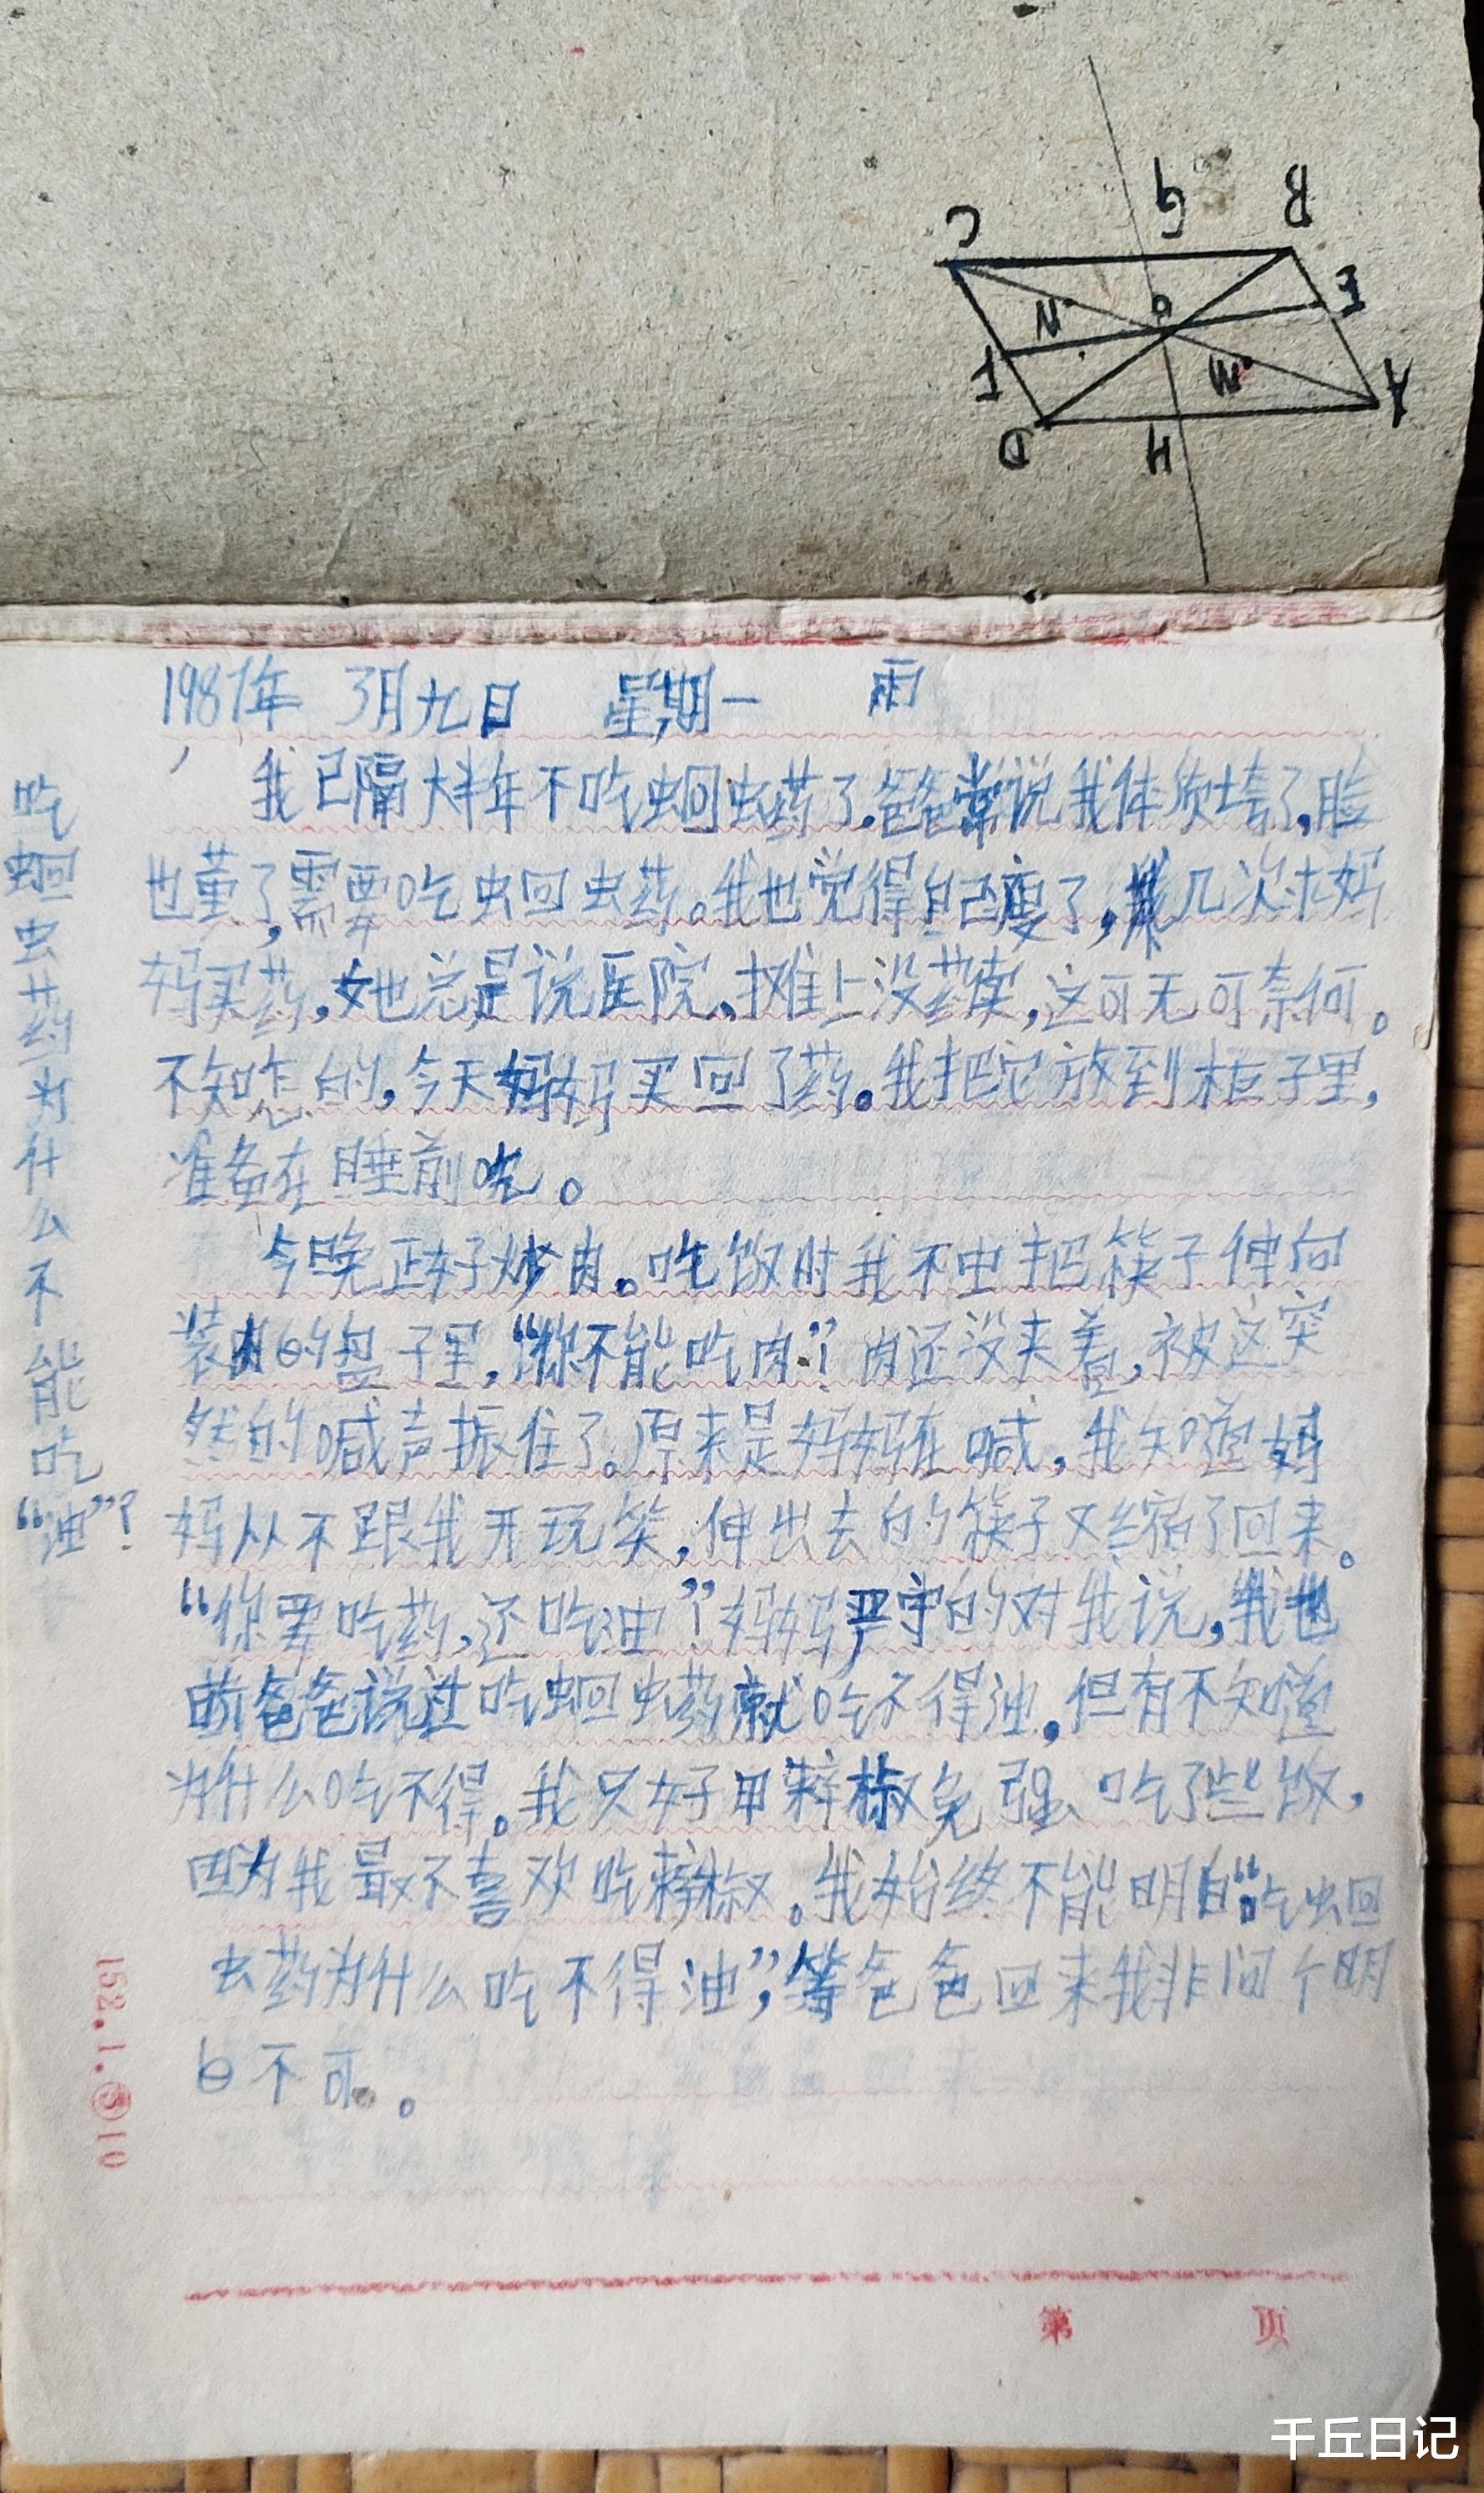 C
G
B
E
N
O
M
F
A
D
H
1987年 3月九日 星期一 雨
我已隔大半年不吃蛔虫药了。爸爸常说我体质垮了,脸
也黄了,需要吃蛔虫药。我也觉得自己瘦了,我几次讨妈
妈买药,她总是说医院、摊上没药卖,这可无可奈何。
不知咋的,今天妈妈买回了药。我把它放到柜子里,
准备在睡前吃。
今晚正好炒肉。吃饭时我不由把筷子伸向
装肉的盘子里,“你不能吃肉!”肉还没夹着,被这突
然的喊声振住了。原来是妈妈在喊,我知道妈
妈从不跟我开玩笑,伸出去的筷子又缩了回来。
“你要吃药,还吃油!”妈妈严守的对我说,我也
听爸爸说过吃蛔虫药就吃不得油,但有不知道
为什么吃不得。我只好用辣椒免强吃了些饭,
因为我最不喜欢吃辣椒。我始终不能明白“吃蛔
虫药为什么吃不得油”,等爸爸回来我非问个明
白不可。
吃蛔虫药为什么不能吃“油”?
152.1.⑤10
第 页
千丘日记